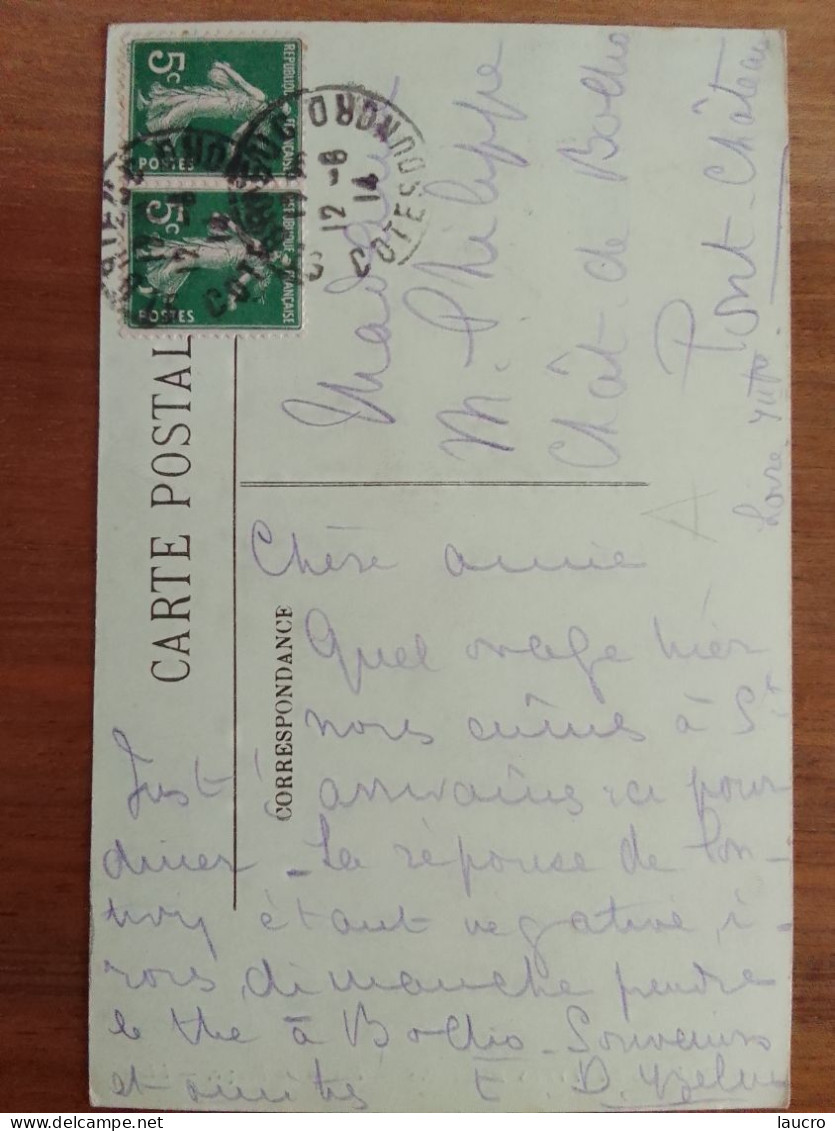 5c
RÉPUBLIQUE FRANÇAISE
POSTES
5c
RÉPUBLIQUE FRANÇAISE
POSTES
12 -8
14
COTES DU NORD
CARTE POSTALE
CORRESPONDANCE
M. Philippe
Chât. de Bolhio
Pont-Château
Loire
Chère amie
Quel orage hier
nous eûmes à St
Just & arrivâmes ici pour
diner - La réponse de Pon-
étant negative, i-
rons dimanche prendre
le thé à Bolhio - Souvenirs
et amitiés
laucro